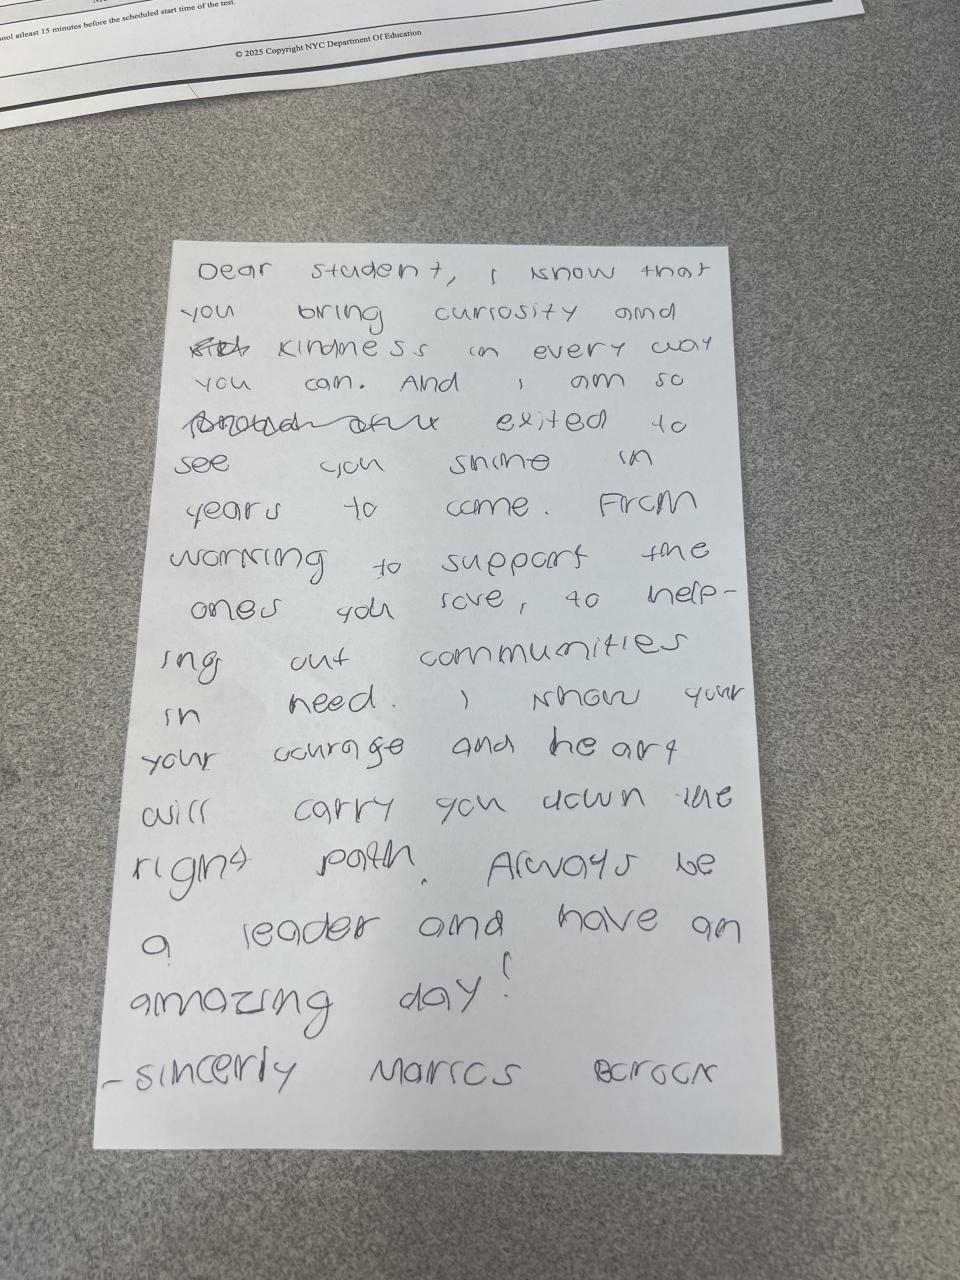 ool atleast 15 minutes before the scheduled start time of the test.
© 2025 Copyright NYC Department Of Education
Dear student, I know that
you bring curiosity and
kindness in every way
you can. And I am so
exited to
see you shine in
years to come. From
working to support the
ones you love, to help-
ing out communities
in need. I know your
your courage and heart
will carry you down the
right path. Always be
a leader and have an
amazing day!
-sincerly Marcos